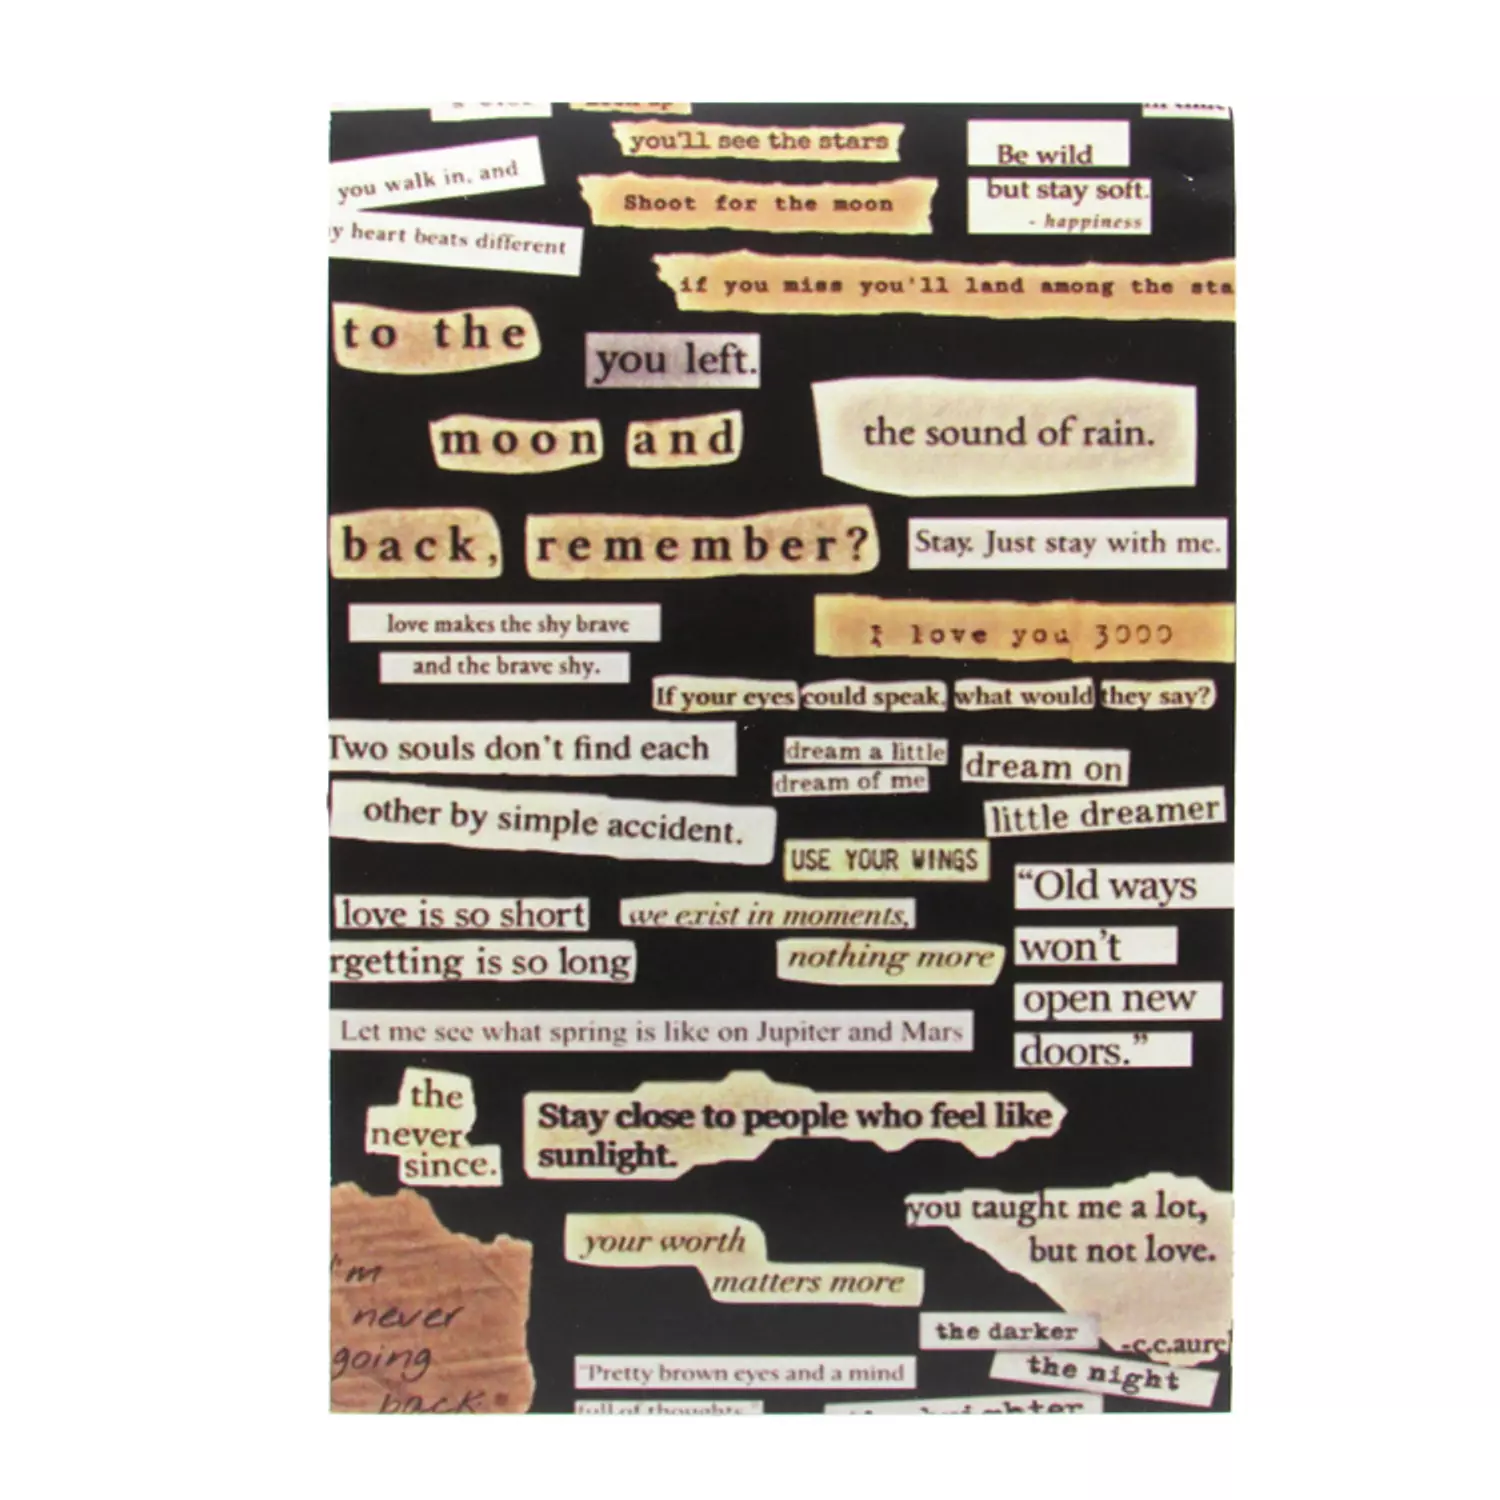 you'll see the stars
Be wild
but stay soft.
- happiness
you walk in, and
heart beats different
Shoot for the moon
if you miss you'll land among the sta
to the
you left.
moon and
the sound of rain.
back, remember?
Stay. Just stay with me.
love makes the shy brave
and the brave shy.
I love you 3000
If your eyes could speak, what would they say?
Two souls don't find each
other by simple accident.
dream a little
dream of me
dream on
little dreamer
USE YOUR WINGS
love is so short
rgetting is so long
we exist in moments,
nothing more
“Old ways
won't
open new
doors.”
Let me see what spring is like on Jupiter and Mars
the
never
since.
Stay close to people who feel like
sunlight.
you taught me a lot,
but not love.
-c.c.aurel
your worth
matters more
I'm
never
going
back
the darker
the night
brighter
"Pretty brown eyes and a mind
full of thoughts."